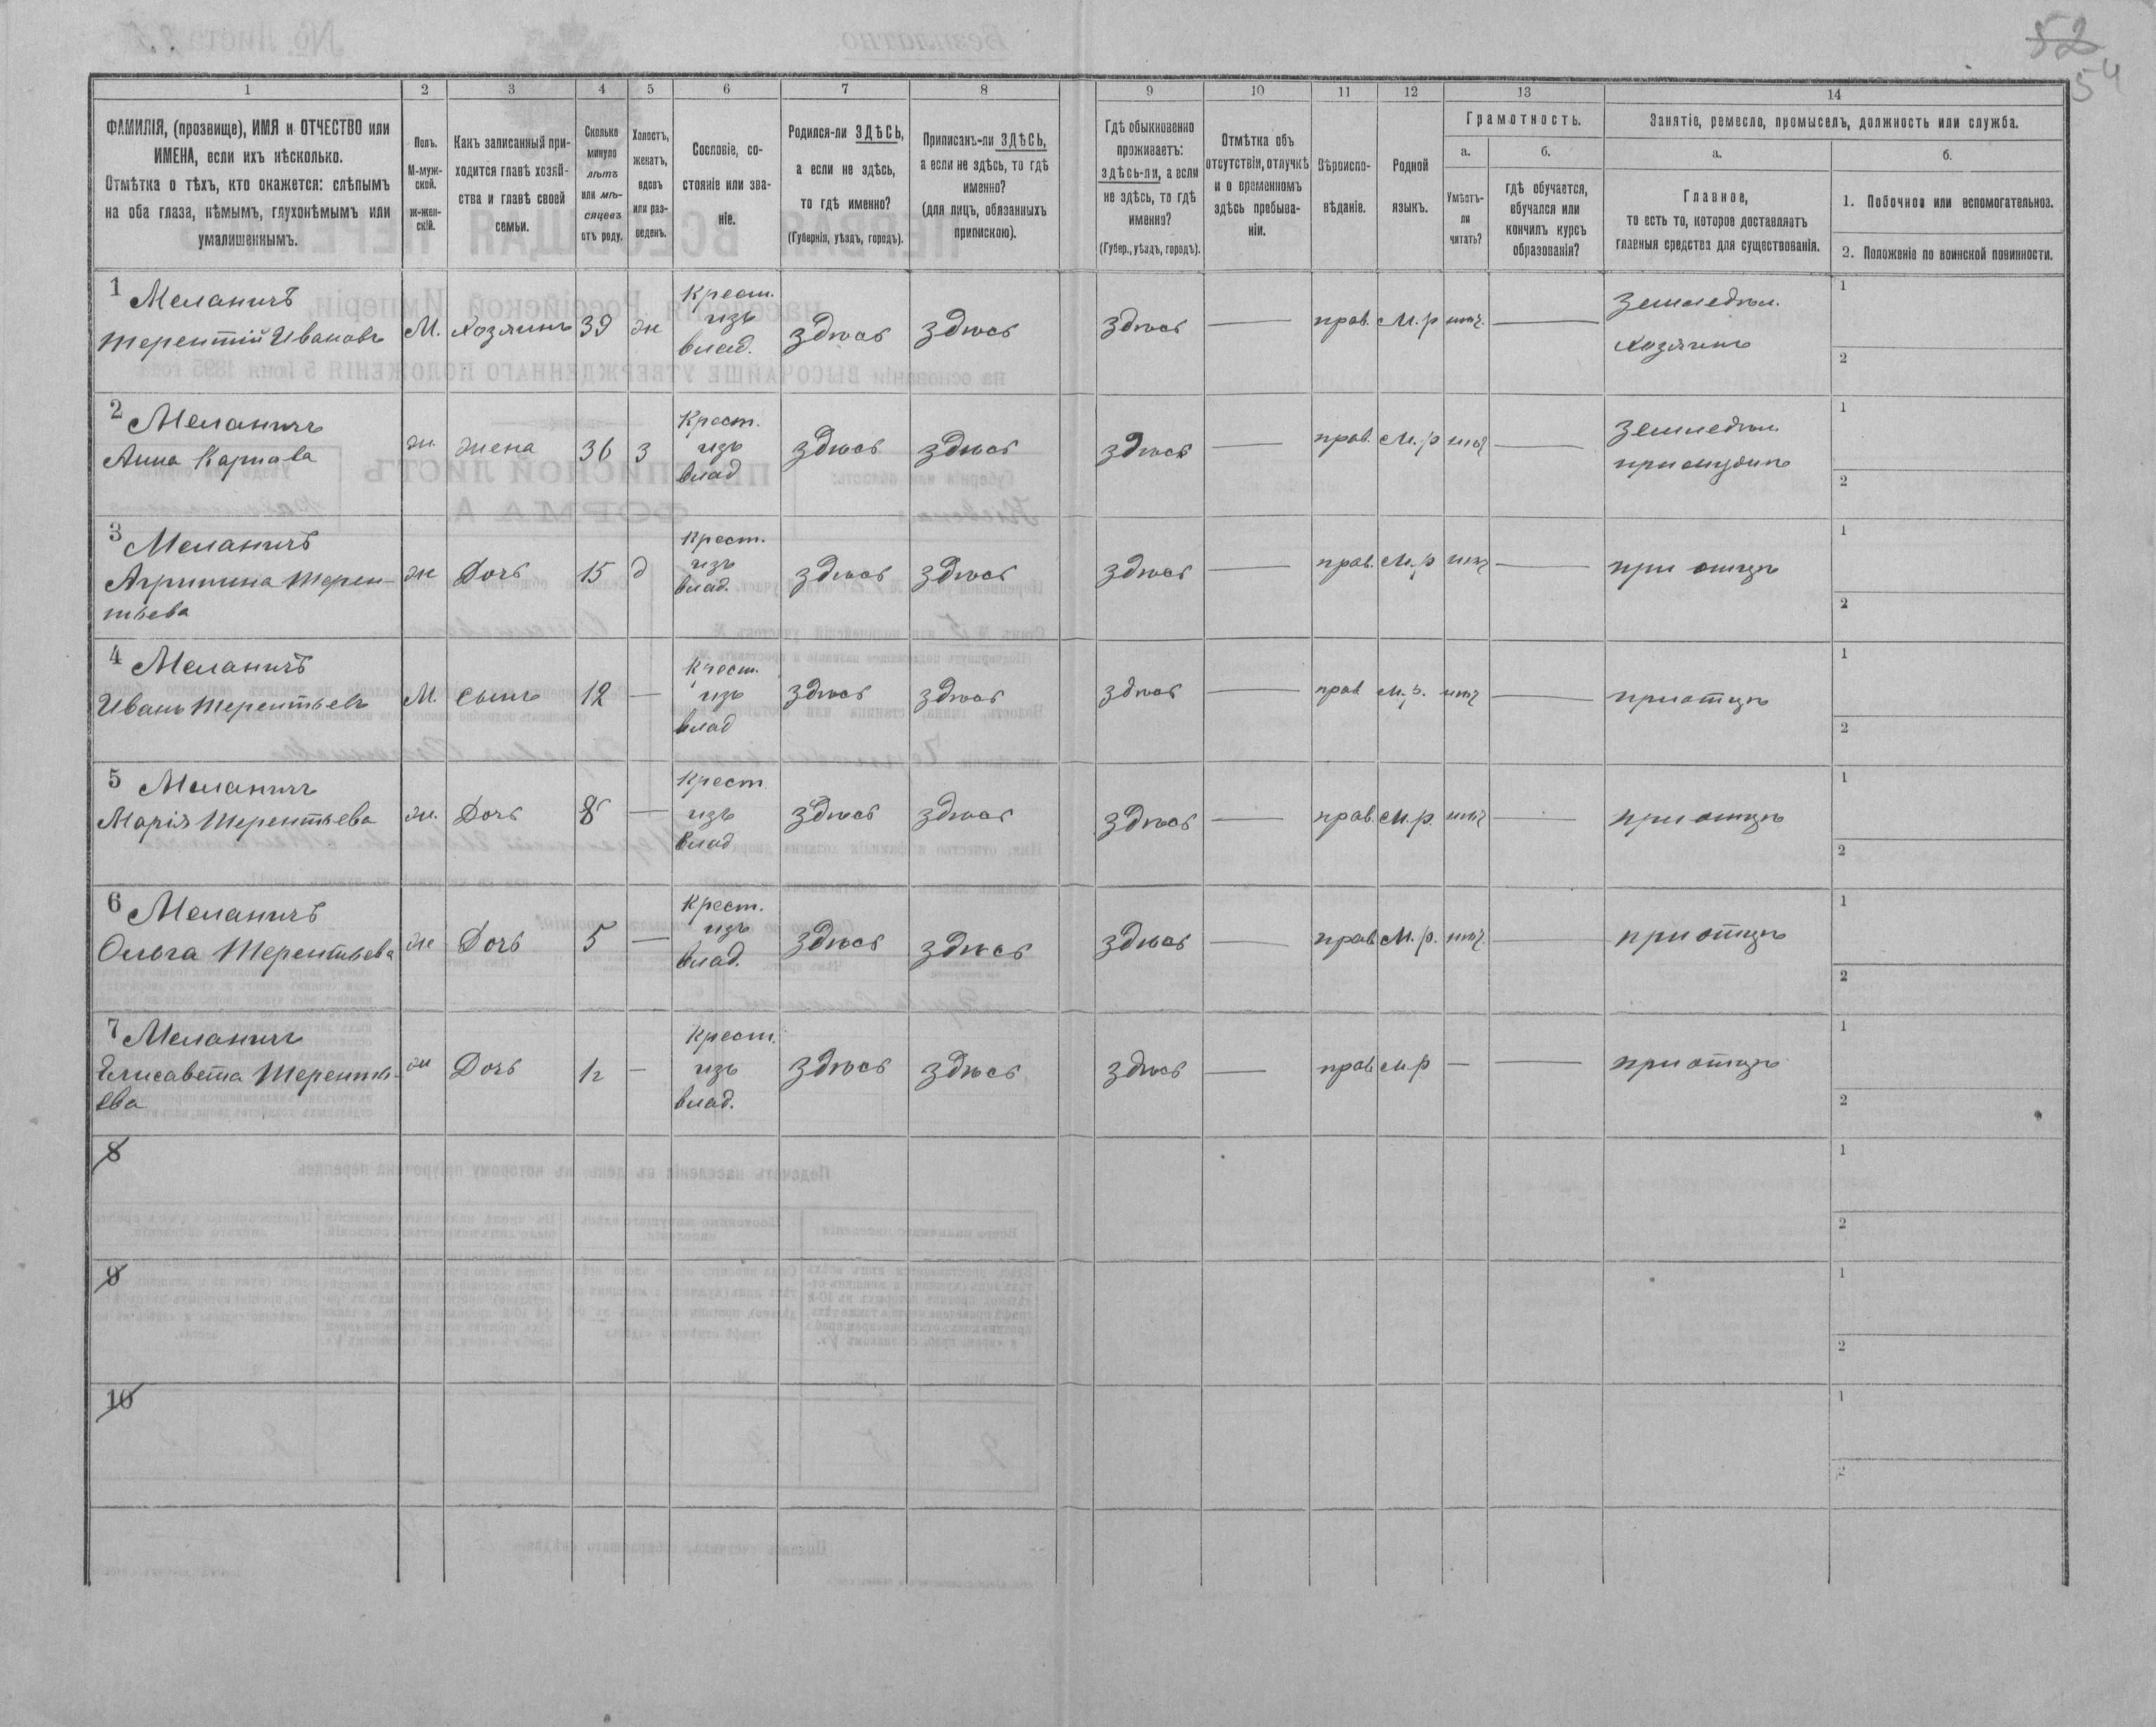 52
54
1 2 3 4 5 6 7 8 9 10 11 12 13 14
ФАМИЛІЯ, (прозвище), ИМЯ и ОТЧЕСТВО или
ИМЕНА, если ихъ нѣсколько.
Отмѣтка о тѣхъ, кто окажется: слѣпымъ
на оба глаза, нѣмымъ, глухонѣмымъ или
умалишеннымъ.
Полъ.
М-муж-
ской.
Ж-жен-
скій.
Какъ записанный при-
ходится главѣ хозяй-
ства и главѣ своей
семьи.
Сколько
минуло
лѣтъ
или мѣ-
сяцевъ
отъ роду.
Холостъ,
женатъ,
вдовъ
или раз-
веденъ.
Сословіе, со-
стояніе или зва-
ніе.
Родился-ли ЗДѢСЬ,
а если не здѣсь,
то гдѣ именно?
(Губернія, уѣздъ, городъ).
Приписанъ-ли ЗДѢСЬ,
а если не здѣсь, то гдѣ
именно?
(для лицъ, обязанныхъ
припискою).
Гдѣ обыкновенно
проживаетъ:
здѣсь-ли, а если
не здѣсь, то гдѣ
именно?
(Губер., уѣздъ, городъ).
Отмѣтка объ
отсутствіи, отлучкѣ
и о временномъ
здѣсь пребыва-
ніи.
Вѣроиспо-
вѣданіе.
Родной
языкъ.
Грамотность.
а.
Умѣетъ-
ли
читать?
б.
гдѣ обучается,
обучался или
кончилъ курсъ
образованія?
Занятіе, ремесло, промыселъ, должность или служба.
а.
Главное,
то есть то, которое доставляетъ
главныя средства для существованія.
б.
1. Побочное или вспомогательное.
2. Положеніе по воинской повинности.
1 Меланичъ
Терентій Ивановъ
М. Хозяинъ 39 ж
Крест.
изъ
влад.
здѣсь здѣсь здѣсь — прав. М.р нѣт. —
Земледѣл.
хозяинъ
1
2
2 Меланичъ
Анна Карпова
ж. жена 36 з
Крест.
изъ
влад
здѣсь здѣсь здѣсь — прав. М.р нѣт —
Земледѣл.
при мужѣ
1
2
3 Меланичъ
Агрипина Терен-
тьева
ж Дочь 15 д
Крест.
изъ
влад.
здѣсь здѣсь здѣсь — прав. М.р нѣт —
при отцѣ
1
2
4 Меланичъ
Иванъ Терентьевъ
М. сынъ 12 —
Крест.
изъ
влад
здѣсь здѣсь здѣсь — прав М.р. нѣт —
при отцѣ
1
2
5 Меланичъ
Марія Терентьева
ж. Дочь 8 —
Крест
изъ
влад
здѣсь здѣсь здѣсь — прав. М.р. нѣт —
при отцѣ
1
2
6 Меланичъ
Ольга Терентьева
ж Дочь 5 —
Крест.
изъ
влад.
здѣсь здѣсь здѣсь — прав М.р. нѣт. —
при отцѣ
1
2
7 Меланичъ
Елисавета Терентьь-
ева
ж Дочь —
Крест.
изъ
влад.
здѣсь здѣсь здѣсь — прав М.р — —
при отцѣ
1
2
8
1
2
9
1
2
10
1
2